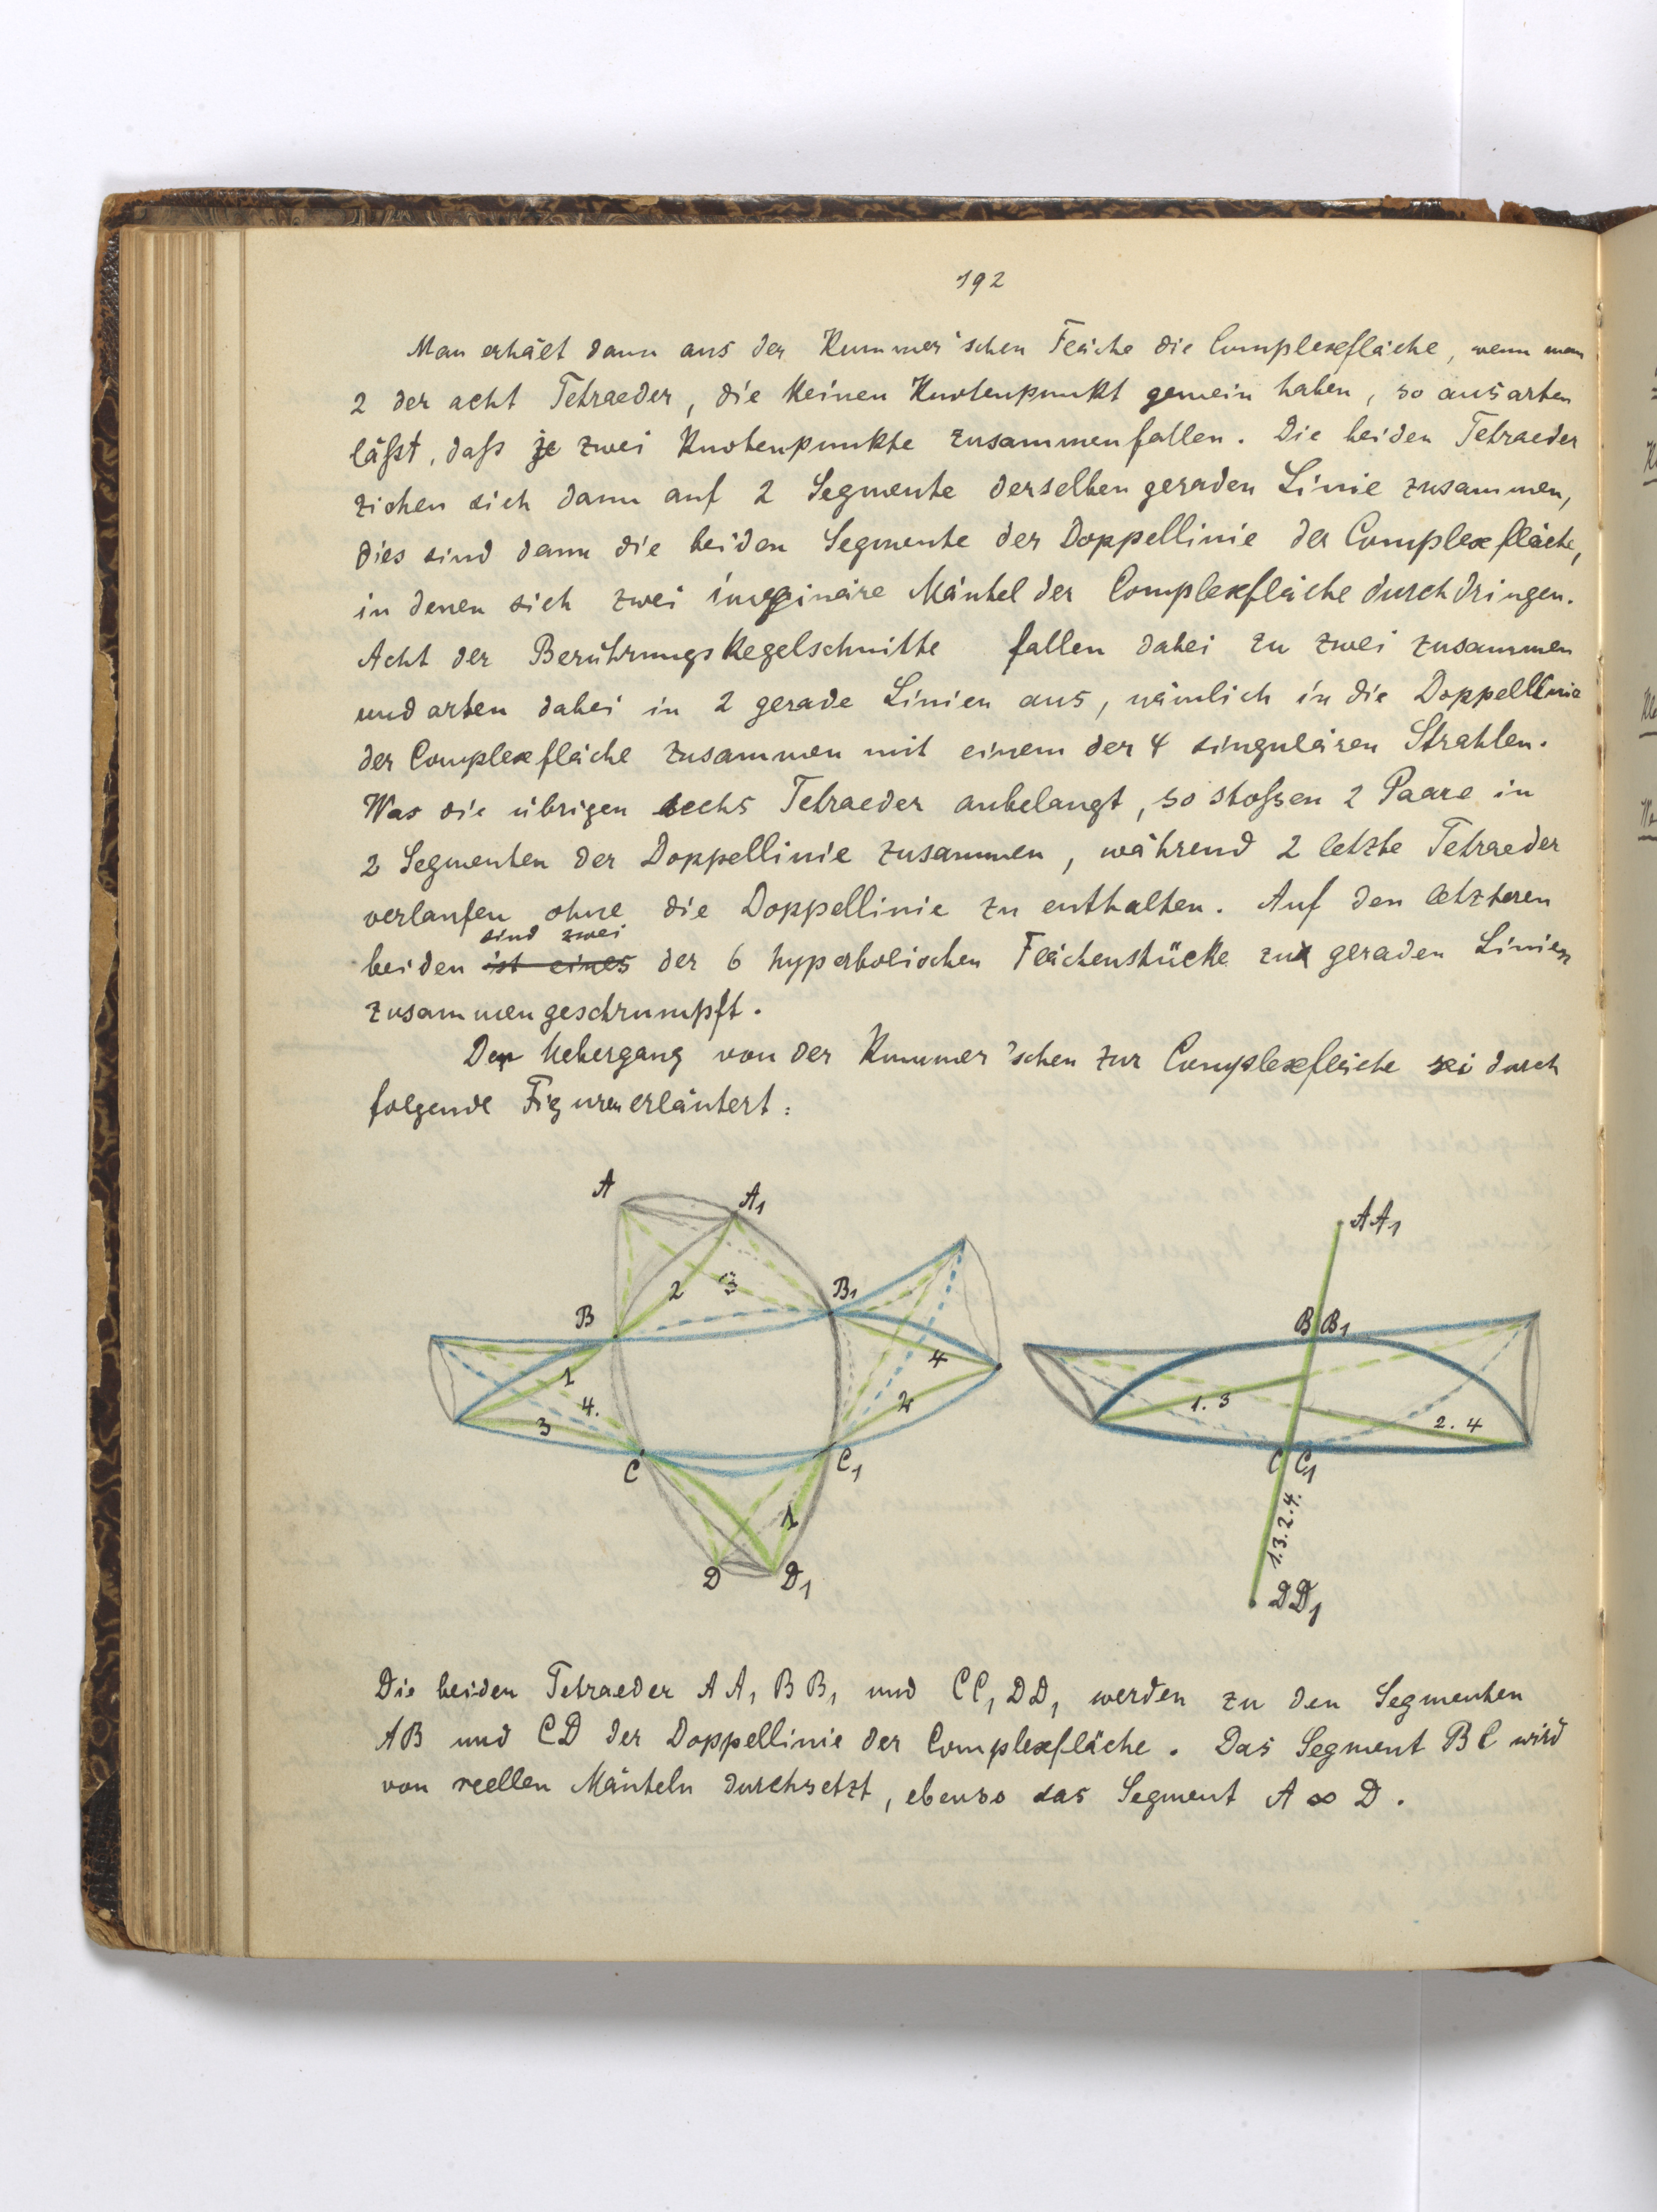 192
Man erhält dann aus der Kummer'schen Fläche die Complexfläche, wenn man
2 der acht Tetraeder, die keinen Knotenpunkt gemein haben, so ausarten
läßt, daß je zwei Knotenpunkte zusammenfallen. Die beiden Tetraeder
ziehen sich dann auf 2 Segmente derselben geraden Linie zusammen,
dies sind dann die beiden Segmente der Doppellinie der Complexfläche,
in denen sich zwei imaginäre Mäntel der Complexfläche durchdringen.
Acht der Berührungskegelschnitte fallen dabei zu zwei zusammen
und arten dabei in 2 gerade Linien aus, nämlich in die Doppellinie
der Complexfläche zusammen mit einem der 4 singulären Strahlen.
Was die übrigen sechs Tetraeder anbelangt, so stoßen 2 Paare in
2 Segmenten der Doppellinie zusammen, während 2 letzte Tetraeder
verlaufen ohne die Doppellinie zu enthalten. Auf den letzteren
sind zwei
beiden ist eines der 6 hyperbolischen Flächenstücke zu geraden Linien
zusammengeschrumpft.
Der Uebergang von der Kummer'schen zur Complexfläche sei durch
folgende Figuren erläutert:
A A1
2 3
B B1
1 4
4. 2
3
C C1
1
D D1
AA1
B B1
1. 3 2. 4
C C1
1.3.2.4.
DD1
Die beiden Tetraeder AA1 BB1 und CC1 DD1 werden zu den Segmenten
AB und CD der Doppellinie der Complexfläche. Das Segment BC wird
von reellen Mänteln durchsetzt, ebenso das Segment A ∞ D.